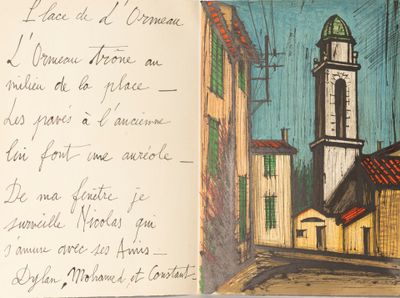 Place de L'Ormeau
L'Ormeau trône au
milieu de la place —
Les pavés à l'ancienne
lui font une auréole —
De ma fenêtre je
surveille Nicolas qui
s'amuse avec ses Amis —
Dylan, Mohamed et Constant —